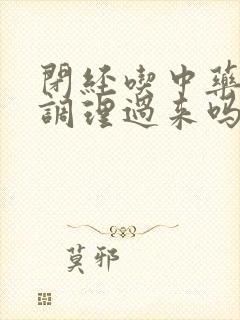 閉經喫中藥
調理過來嗎
莫邪